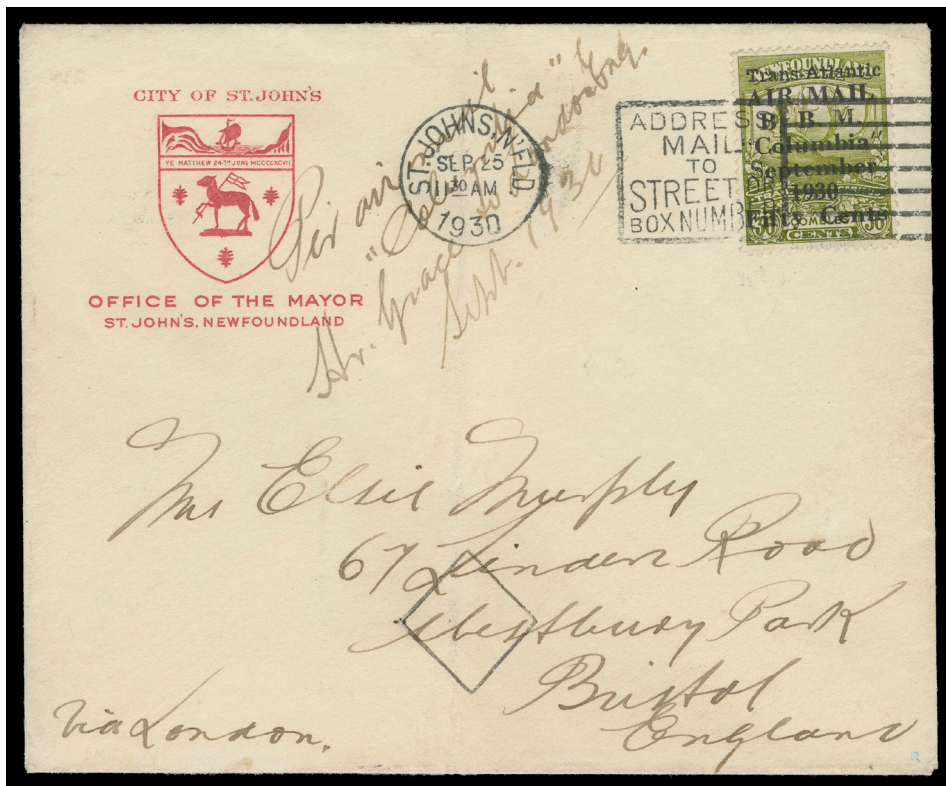 CITY OF ST. JOHN'S
YE MATTHEW 24TH JUNE MCCCCXCVII
OFFICE OF THE MAYOR
ST. JOHN'S, NEWFOUNDLAND
Per air mail
"Columbia"
Hr. Grace to London Eng.
Sept. 1930
ST. JOHNS, N'FLD
SEP 25
11 30 AM
1930
ADDRESS
MAIL
TO
STREET OR
BOX NUMBER
NEWFOUNDLAND
Trans-Atlantic
AIR MAIL
By B. M.
"Columbia"
September
1930
Fifty Cents
36 CENTS 36
Mrs Elsie Murphy
67 Linden Road
Westbury Park
Bristol
England
Via London.